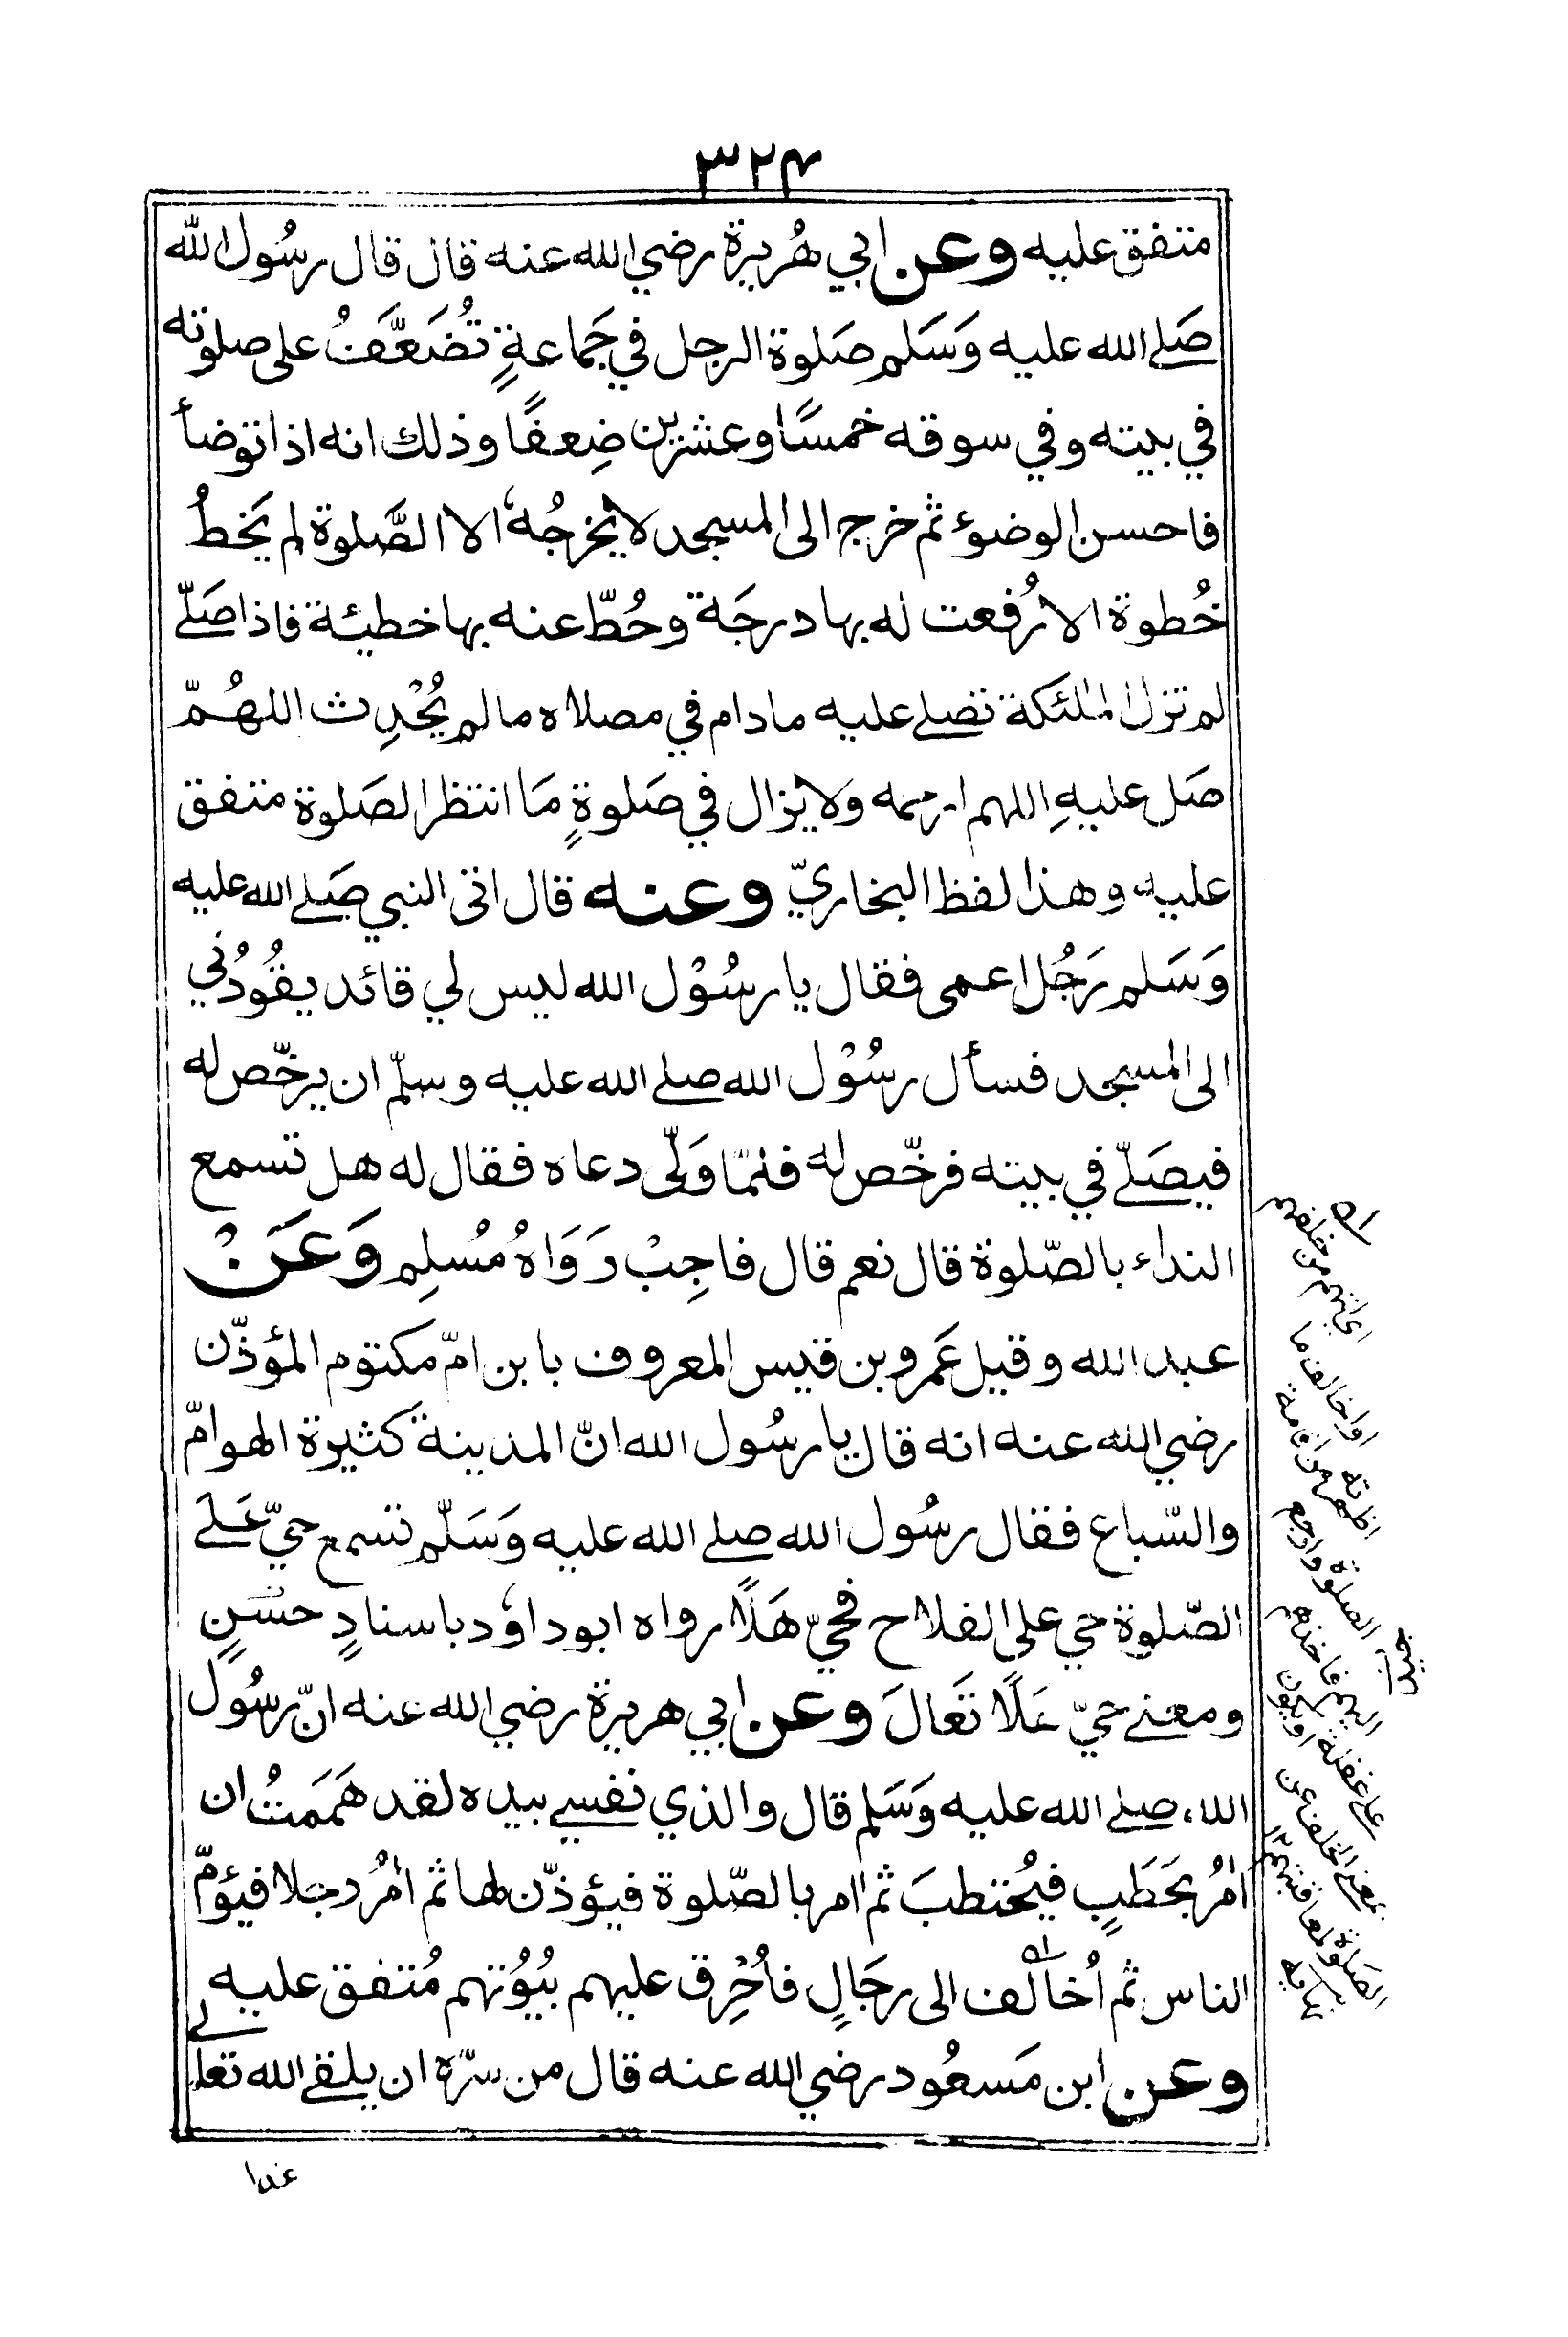 ٣٢٤
متفق عليه وعن ابي هُريرة رضي الله عنه قال قال رسُول الله
صَلے الله عليه وَسَلم صَلوة الرجل في جَماعةٍ تُضَعَّفُ على صلوته
في بيته وفي سوقه خمسًا وعشرين ضِعفًا وذلك انه اذا توضأ
فاحسن الوضوٴ ثم خرج الى المسجد لا يخرجُهٗ الا الصَّلوة لم يَخطُ
خُطوة الا رُفعت له بها درجَة وحُطّ عنه بها خطيئة فاذا صَلّے
لم تزل الملٰئكة تصلے عليه مادام في مصلاه مالم يُحْدِث اللهُمّ
صَل عليهِ اللهم ارحمه ولا يزال في صَلوةٍ مَا انتظر الصَلوة متفق
عليه وهذا لفظ البخاريّ وعنه قال اتى النبي صَلے الله عليه
وَسَلم رَجُل اعمى فقال يا رسُوْل الله ليس لي قائد يقُودُني
الى المسجد فسأل رسُوْل الله صلے الله عليه وسلّم ان يرخّص له
فيصَلّے في بيته فرخّص له فلمّا وَلّى دعاه فقال له هل تسمع
النداء بالصّلوة قال نعم قال فاجِبْ رَوَاهُ مُسلِم وَعَنْ
عبد الله وقيل عَمرو بن قيس المعروف بابن امّ مكتوم المؤذّن
رضي الله عنه انه قال يا رسُول الله انّ المدينة كثيرة الهوامّ
والسّباع فقال رسُول الله صلے الله عليه وَسَلّم تسمع حيّ عَلَے
الصّلوة حي على الفلاح فحيّ هَلًا رواه ابو داوٗد باسنادٍ حسَنٍ
ومعنے حيّ هَلًا تَعَالَ وعن ابي هريرة رضي الله عنه انّ رسُول
الله صلے الله عليه وَسَلم قال والذي نفسے بيده لقد هَمَمتُ ان
اٰمُرَ بحَطَبٍ فيُحتطبَ ثم اٰمر بالصّلوة فيؤذّن لها ثم اٰمُر رجلا فيؤمّ
الناس ثم اُخالف الى رجَالٍ فاُحْرِق عليهم بيُوُتهم مُتفق عليه
وعن ابن مَسعُود رضي الله عنه قال من سرّه ان يلقے الله تعالے
غدا
اى اٰتيهم من خلفهم
او اخالف ما
اظهرته من اقامة
الصلوة وارجع
اليهم فاخذهم
على غفلة او يكون
بمعنے اتخلف عن
الصلوة لمعاقبتهم ١٢
نهايه